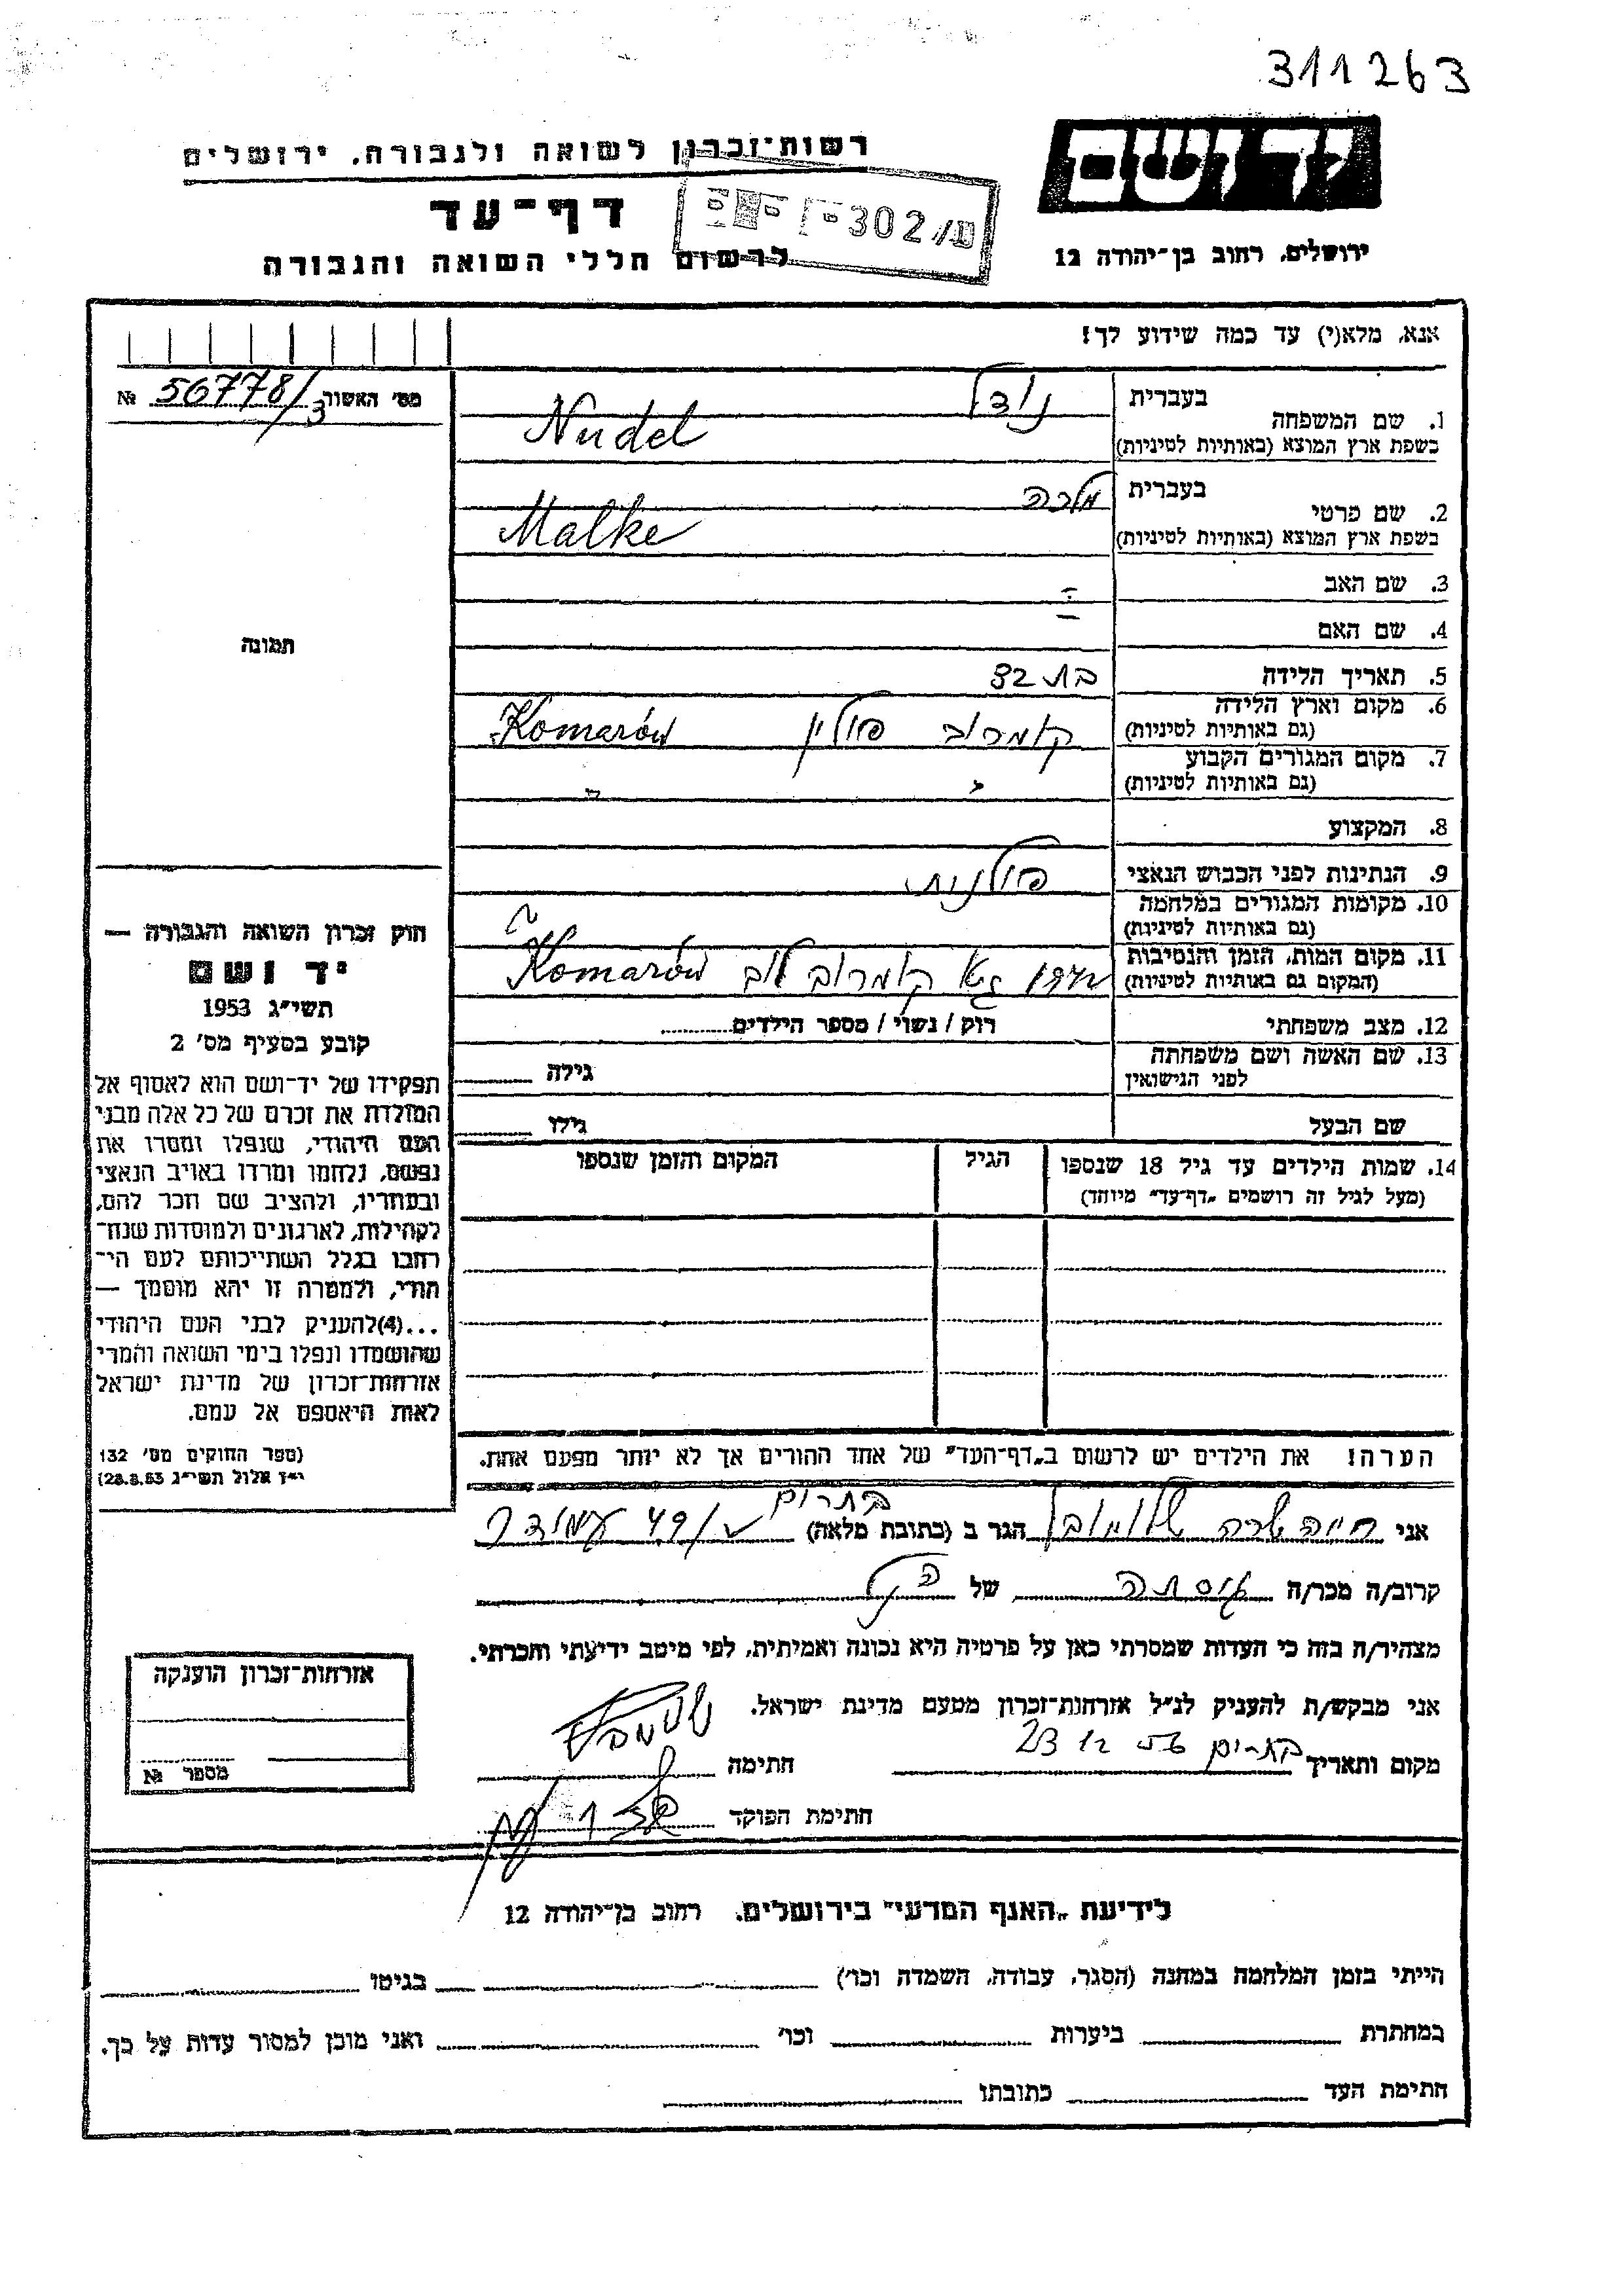 311263
יד ושם
רשות־זכרון לשואה ולגבורה, ירושלים
דף־עד
302
לרשום חללי השואה והגבורה
ירושלים, רחוב בן־יהודה 12
אנא, מלא(י) עד כמה שידוע לך!
מס׳ האשור 56778/3 №
תמונה
1. שם המשפחה
בעברית נודל
בשפת ארץ המוצא (באותיות לטיניות) Nudel
2. שם פרטי
בעברית מלכה
בשפת ארץ המוצא (באותיות לטיניות) Malke
3. שם האב
4. שם האם
5. תאריך הלידה בת 32
6. מקום וארץ הלידה קומרוב פולין Komarów
(גם באותיות לטיניות)
7. מקום המגורים הקבוע
(גם באותיות לטיניות)
8. המקצוע
9. הנתינות לפני הכבוש הנאצי פולנית
10. מקומות המגורים במלחמה
(גם באותיות לטיניות)
11. מקום המות, הזמן והנסיבות Komarów
(המקום גם באותיות לטיניות)
12. מצב משפחתי רוק / נשוי / מספר הילדים
13. שם האשה ושם משפחתה גילה
לפני הנישואין
שם הבעל גילו
14. שמות הילדים עד גיל 18 שנספו הגיל המקום והזמן שנספו
(מעל לגיל זה רושמים „דף־עד״ מיוחד)
הערה! את הילדים יש לרשום ב„דף־העד״ של אחד ההורים אך לא יותר מפעם אחת.
חוק זכרון השואה והגבורה —
יד ושם
תשי״ג 1953
קובע בסעיף מס׳ 2
תפקידו של יד־ושם הוא לאסוף אל
המולדת את זכרם של כל אלה מבני
העם היהודי, שנפלו ומסרו את
נפשם, נלחמו ומרדו באויב הנאצי
ובעוזריו, ולהציב שם וזכר להם,
לקהילות, לארגונים ולמוסדות שנח־
רבו בגלל השתייכותם לעם הי־
הודי, ולמטרה זו יהא מוסמך —
...(4) להעניק לבני העם היהודי
שהושמדו ונפלו בימי השואה והמרי
אזרחות־זכרון של מדינת ישראל
לאות היאספם אל עמם.
(ספר החוקים מס׳ 132
י״ז אלול תשי״ג 28.8.53)
אני חיה שרה הגר ב (כתובת מלאה)
קרוב/ה מכר/ה של
מצהיר/ה בזה כי העדות שמסרתי כאן על פרטיה היא נכונה ואמיתית, לפי מיטב ידיעתי והכרתי.
אני מבקש/ת להעניק לנ״ל אזרחות־זכרון מטעם מדינת ישראל.
מקום ותאריך 23 12 56 חתימה
חתימת הפוקד
אזרחות־זכרון הוענקה
מספר №
לידיעת „האגף המדעי״ בירושלים, רחוב בן־יהודה 12
הייתי בזמן המלחמה במחנה (הסגר, עבודה, השמדה וכו׳) בגיטו
במחתרת ביערות וכו׳ ואני מוכן למסור עדות על כך.
חתימת העד כתובתו